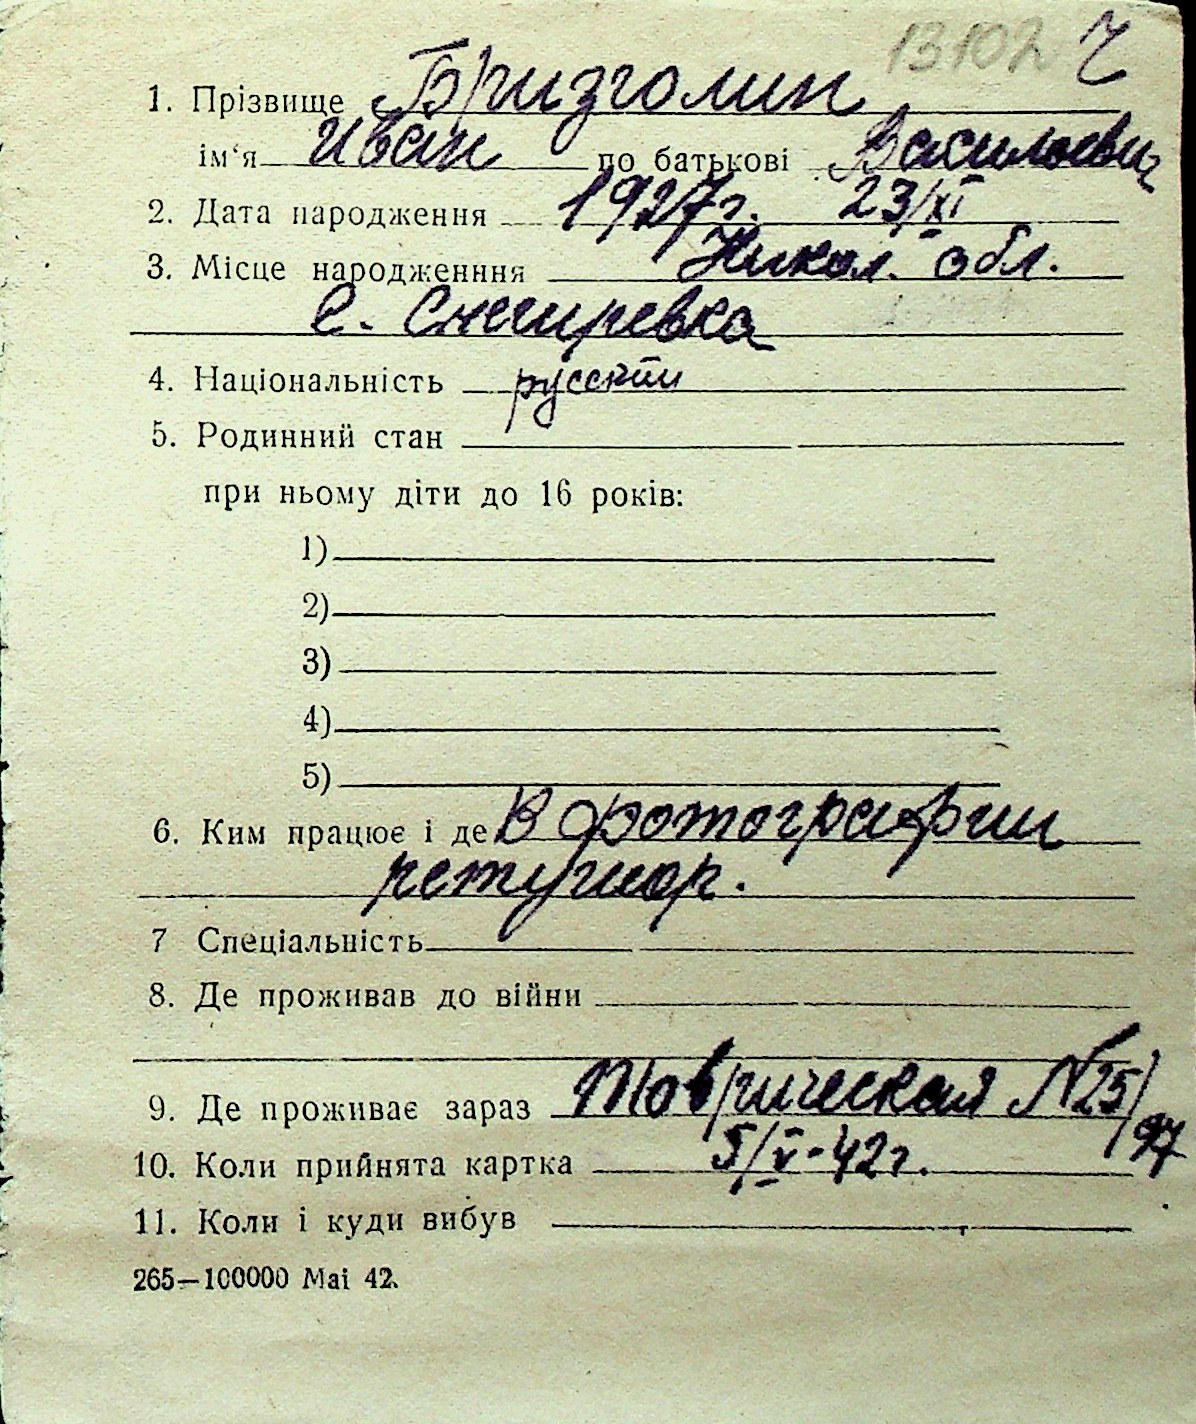 13102 Ч
1. Прізвище Бризголин
ім‘я Иван по батькові Василиеви
2. Дата народження 1927г. 23/XI
3. Місце народженння Никол. обл.
С. Снегиревка
4. Національність русский
5. Родинний стан
при ньому діти до 16 років:
1)
2)
3)
4)
5)
6. Ким працює і де В фотографии
ретушор.
7 Спеціальність
8. Де проживав до війни
9. Де проживає зараз Товрическая №25/97
10. Коли прийнята картка 5/V-42г.
11. Коли і куди вибув
265—100000 Mai 42.